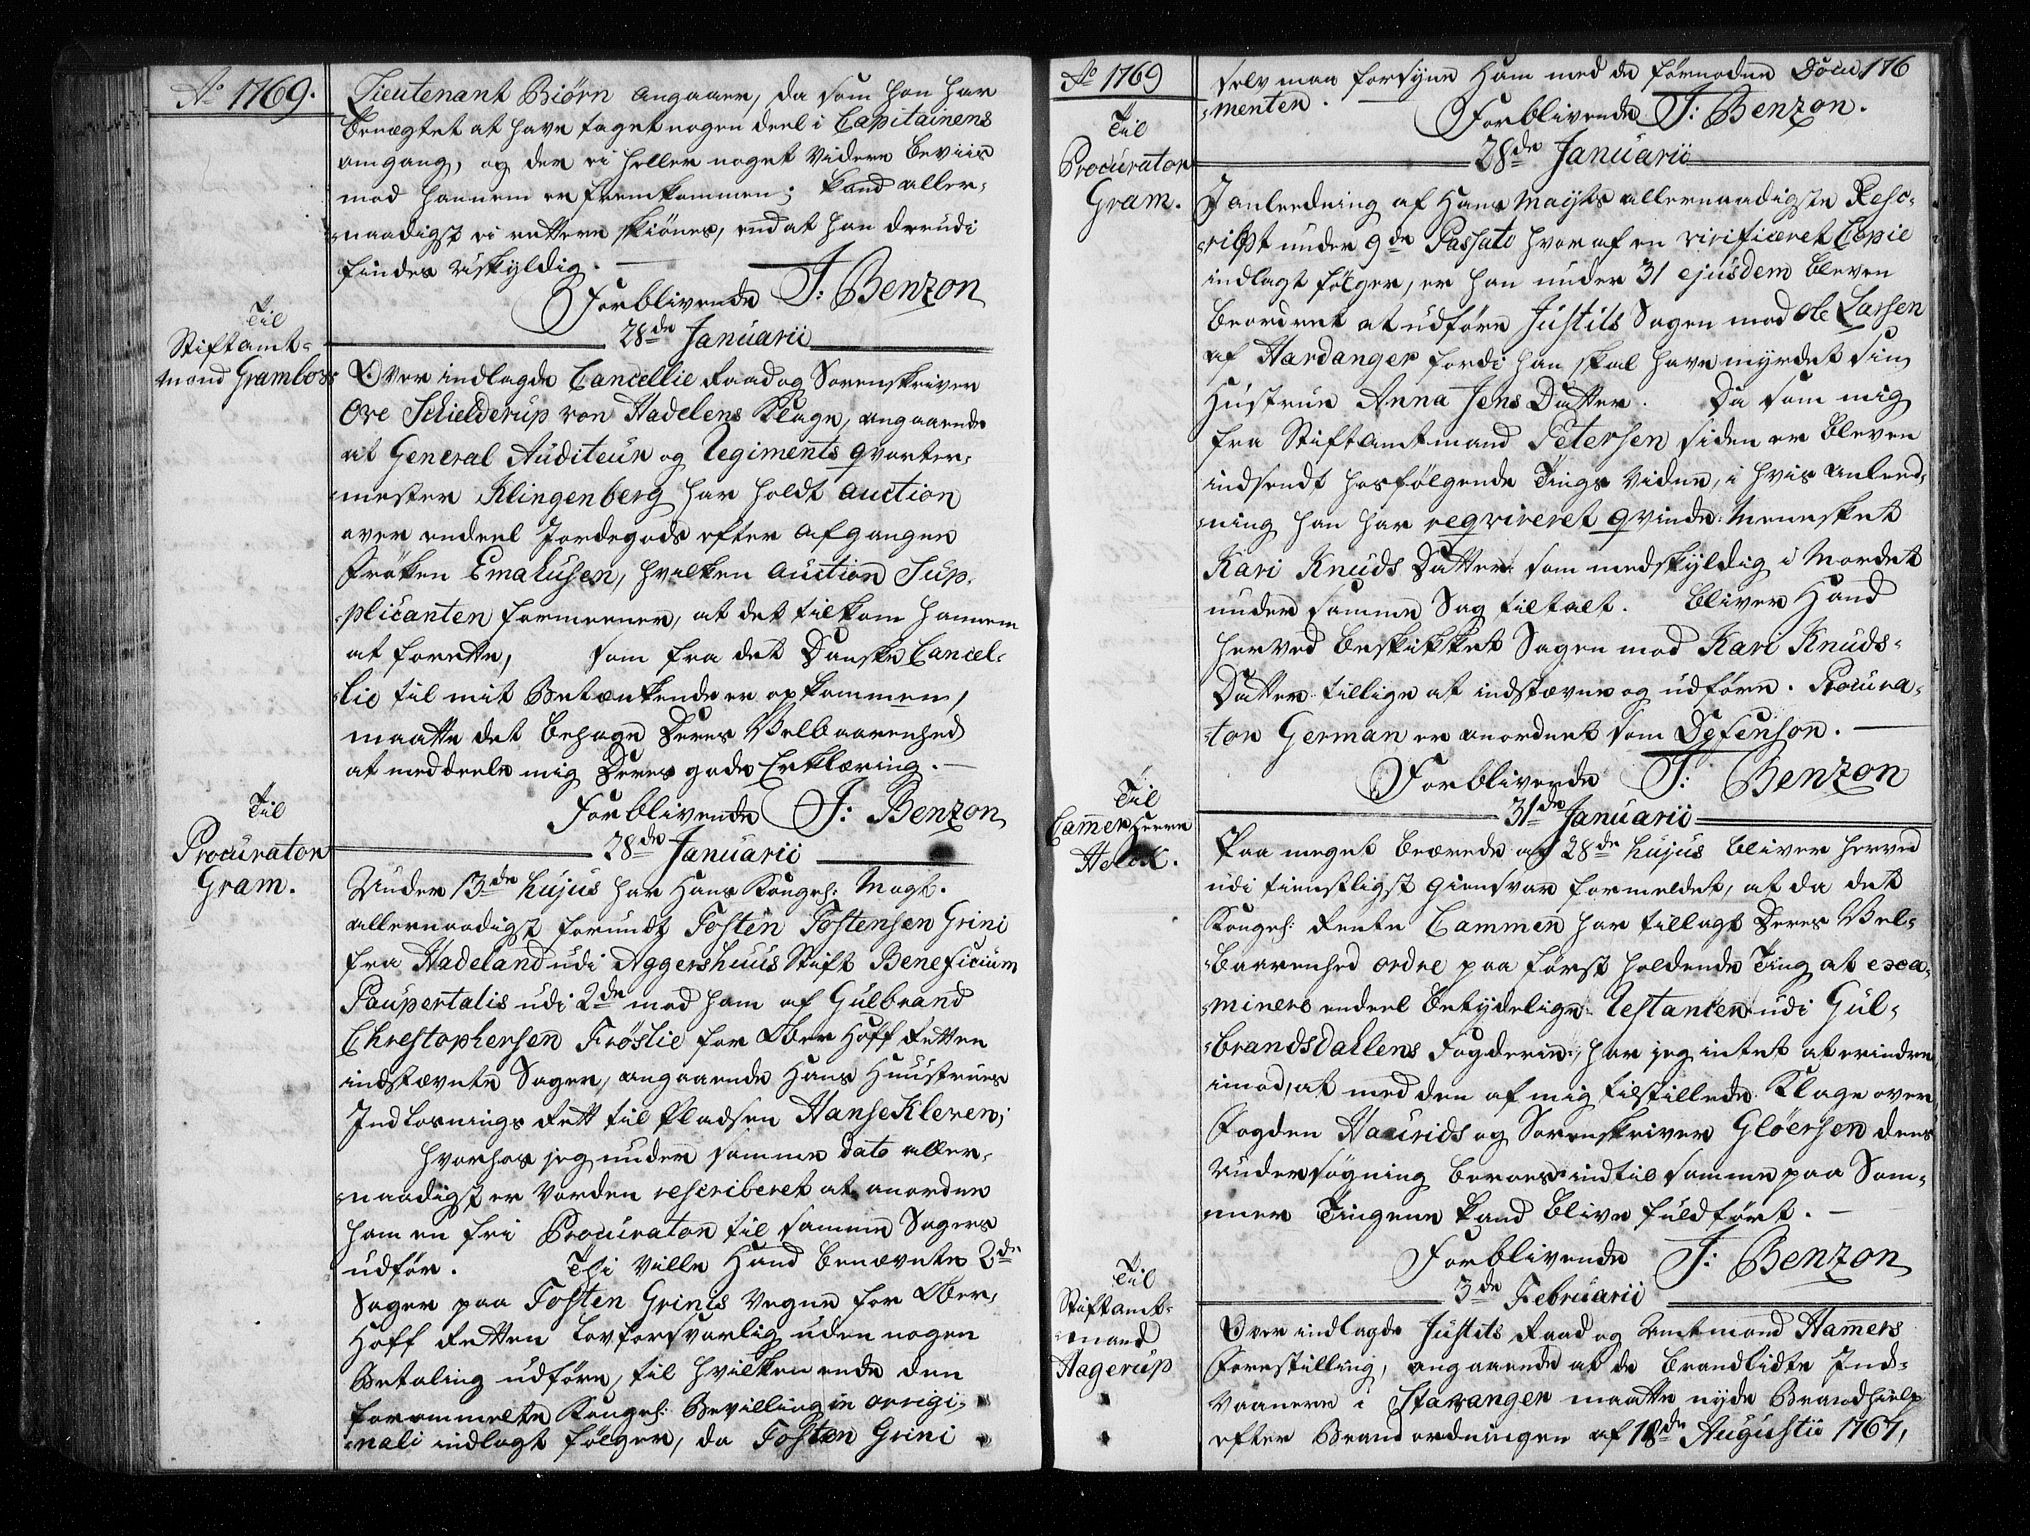 Ao 1769.
Lieutenant Biørn angaaer, da som han har
benægtet at have taget nogen deel i Capitainens
omgang, og der ei heller noget videre beviis
mod hannem er fremkommen; kand aller-
-naadigst ei rettere skiønes, end at han derudi
findes uskyldig.
Forblivende J: Benzon
28de Januarii
Til
Stiftamt-
mand Grambow
Over indlagde Cancellie Raad og Sorenskriver
Ove Schielderup von Hadelens Klage, angaaende
at General Auditeur og Regiments qvarteer-
-mester Klingenberg har holdt Auction
over endeel Jordegods efter afgangen
Frøken Emahusen, hvilken Auction Sup-
-plicanten formeener, at det tilkom hannem
at forrette, som fra det Danske Cancel-
-lie til mit Betænkende er opkommen,
maatte det behage Deres Velbaarenhed
at meddeele mig Deres gode Erklæring.
Forblivende J: Benzon
28de Januarii
Til
Procurator
Gram.
Under 13de hujus har Hans Kongel: Mayt.
allernaadigst forundt Tosten Tostensen Grini
fra Hadeland udi Aggershuus Stift Beneficium
Paupertatis udi 2de mod ham af Gulbrand
Christophersen Frøslie for Ober Hoff Retten
indstævnte Sager, angaaende Hans Huustrues
Indløsnings Rett til Pladsen HanseKleven;
hvorhos jeg under samme dato aller-
-naadigst er vorden rescriberet at anordne
ham en fri Procurator til samme Sagers
udfør. Thi ville Hand benævnte 2de
Sager paa Tosten Grinis vegne for Ober-
Hoff Retten lovforsvarlig uden nogen
Betaling udføre, til hvilken ende den
forommeldte Kongel: Bevilling in origi-
-nali indlagt følger, da Tosten Grini
Ao 1769
176
selv maa forsyne Ham med de fornødne Docu-
-menter.
Forblivende J: Benzon.
28de Januarii
Til
Procurator
Gram.
I anleedning af Hans Mayts allernaadigste Resc-
-ript under 9de Passato hvoraf en virificeret Copie
indlagt følger, er han under 31 ejusdem bleven
beordret at udføre Justits Sagen mod Ole Larsen
af Hardanger fordi han skal have myrdet sin
Hustrue Anna Jens Datter. Da som mig
fra Stiftamtmand Petersen siden er bleven
indsendt hosfølgende Tings vidne, i hvis anleed-
-ning han har reqvireret qvinde Mennesket
Kari Knuds Datter som medskyldig i Mordet
under samme Sag tiltalt. bliver Hand
herved beskikket Sagen mod Kari Knuds-
Datter tillige at indstævne og udføre. Procura-
-tor German er anordnet som Defensor.
Forblivende J: Benzon
31de Januarii
Til
Cammer Herre
Helok.
Paa meget beærede af 28de hujus bliver herved
udi tienstligst giensvar formeldet, at da det
Kongel: Rente Cammer har tillagt Deres Vel-
-baarenhed ordre paa først holdende Ting at exa-
-minere endeel betydelige Restancer udi Gul-
-brandsdallens Fogderie, har jeg intet at erindre
imod, at med den af mig tilstillede Klage over
Fogden Haurids og Sorenskriver Gløersen dens
undersøgning beroer indtil samme paa Som-
-mer Tingene kand blive fuldført.
Forblivende J: Benzon
3de Februarii
Til
Stiftamt-
-mand
Hagerup
Over indlagde Justits Raad og Amtmand Hamers
Forestilling, angaaende at de brandlidte Ind-
vaanere i Stavanger maatte nyde Brandhielp
efter Brand ordningen af 18de Augustii 1767,